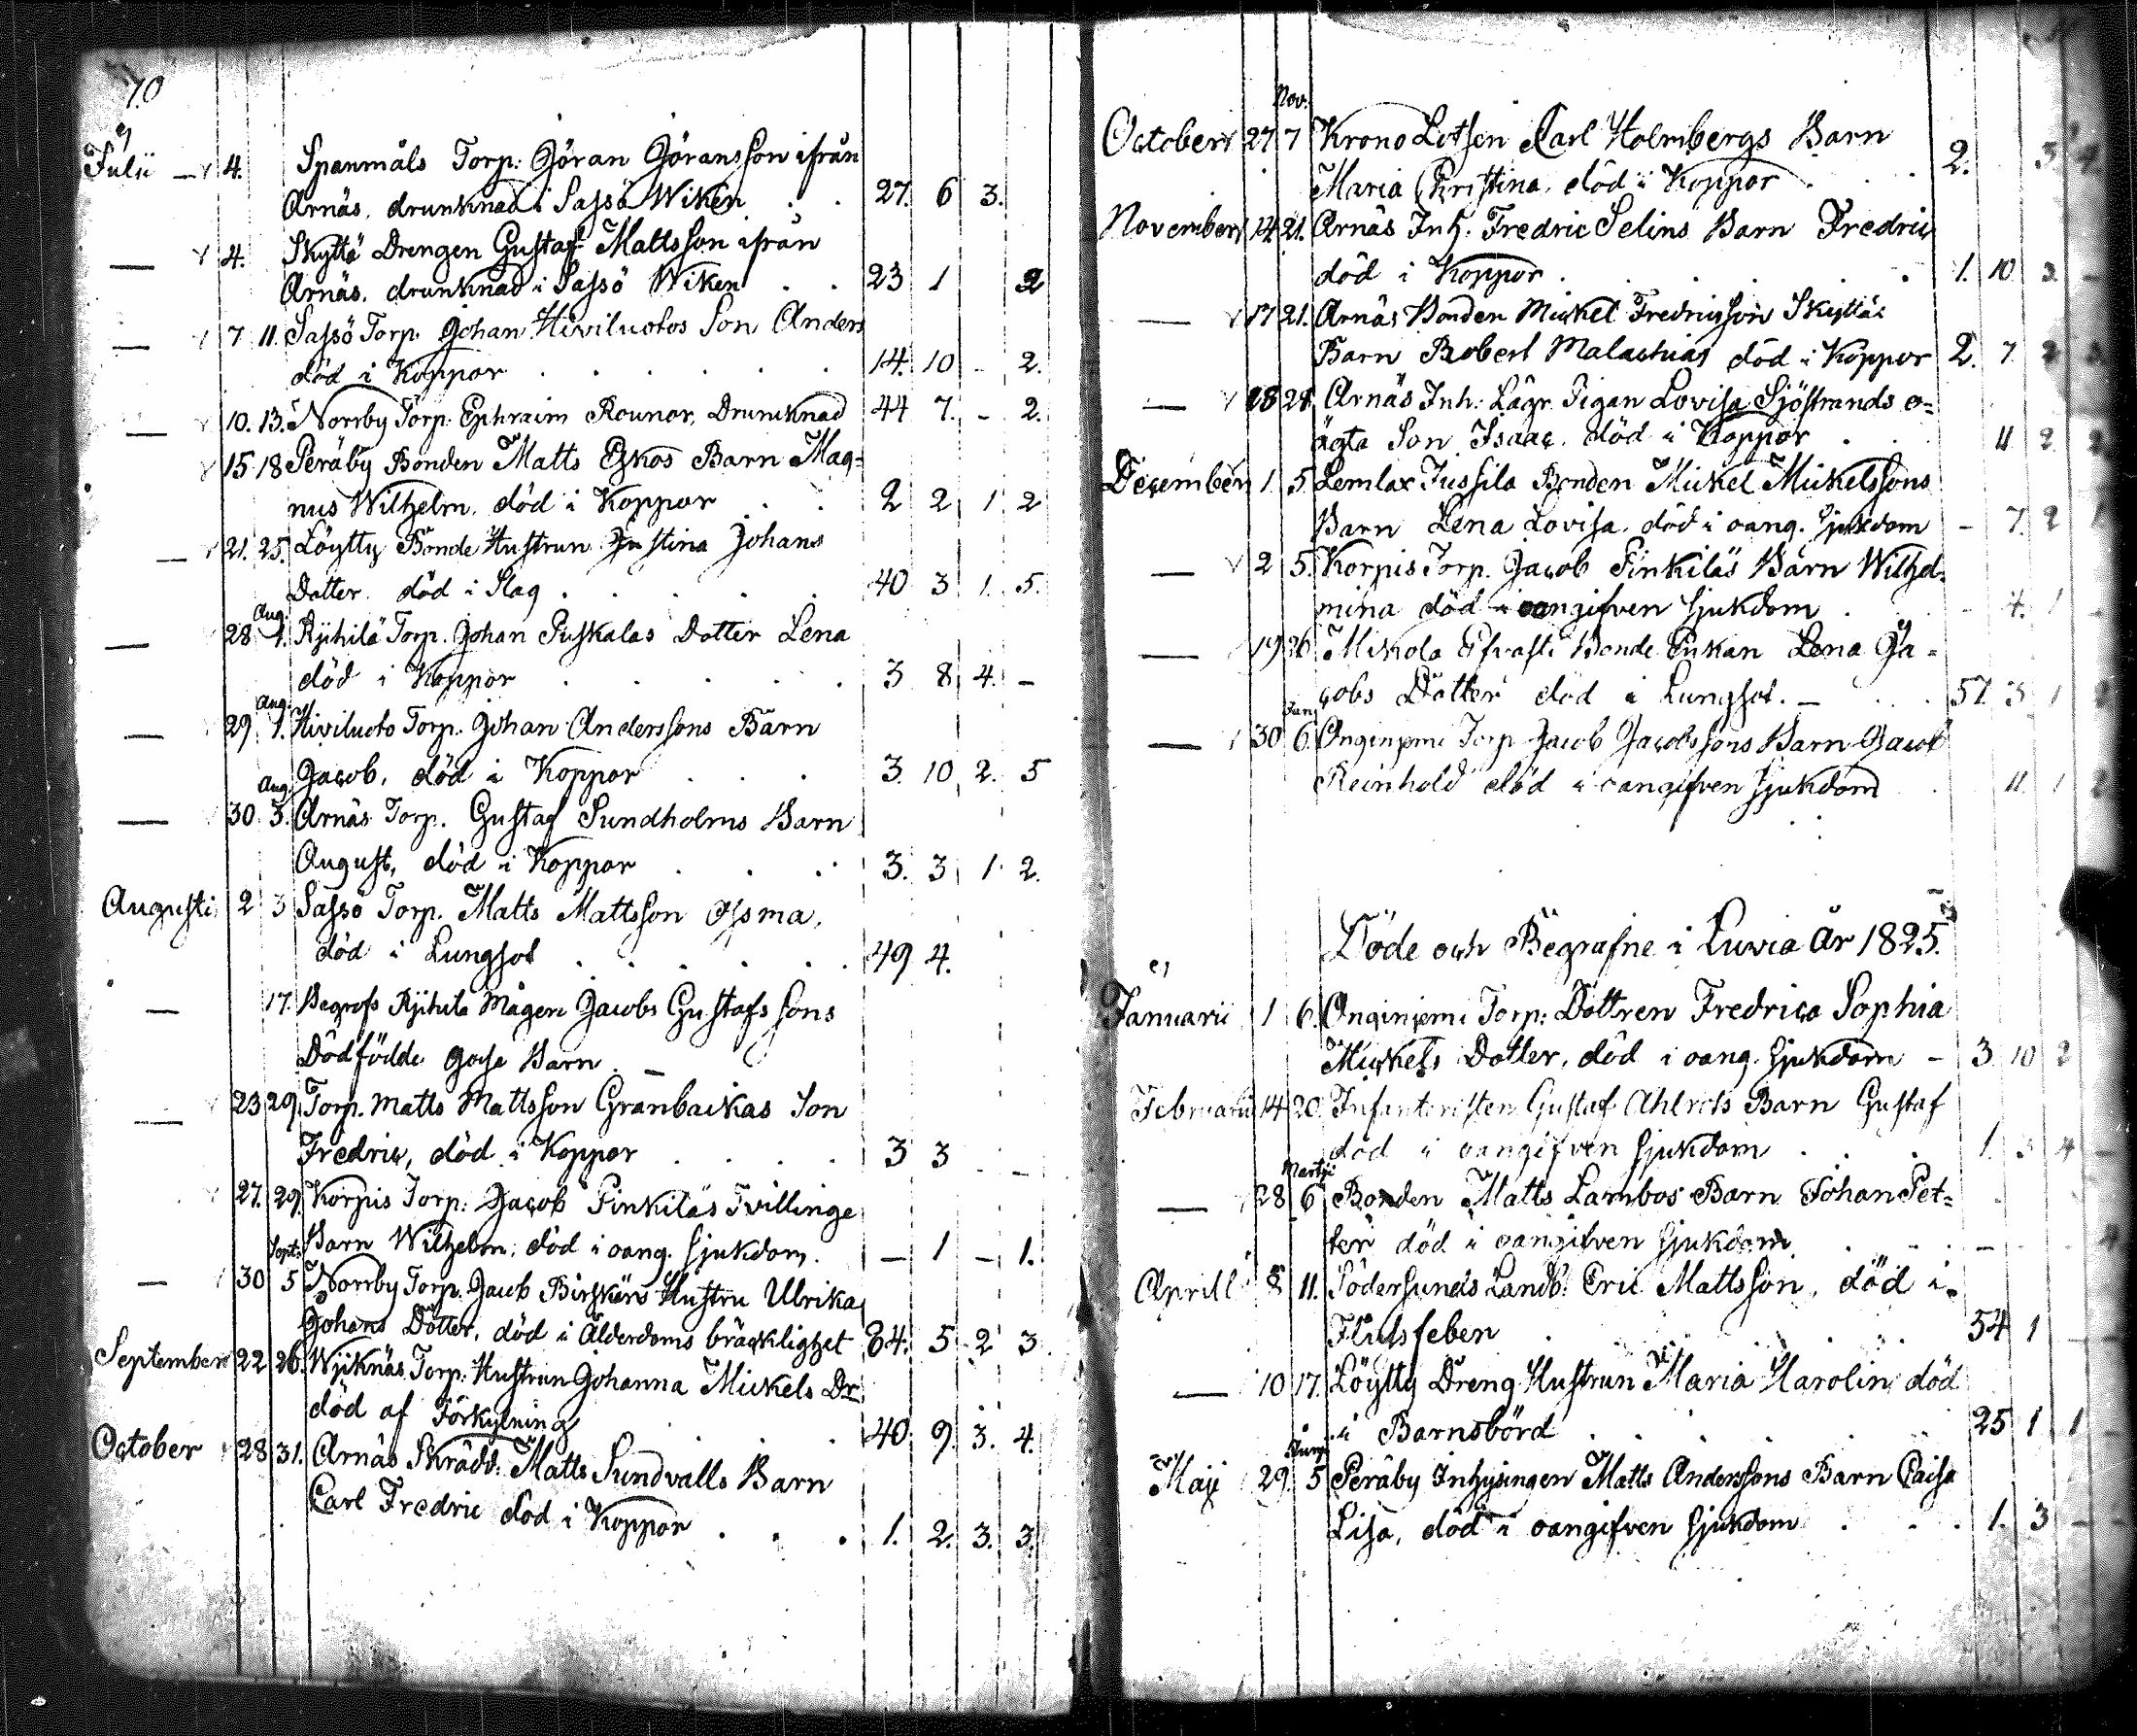 70
Julii 4. Spanmåls Torp: Göran Göransson ifrån
Arnäs, drunknad i Sassö Wiken . . 27. 6 3.
— 4. Skyttä Drengen Gustaf Mattsson ifrån
Arnäs, drunknad i Sassö Wiken . . 23 1 2
— 7 11. Sassö Torp. Johan Hiviluotos Son Anders
död i Koppor . . . . . 14. 10 - 2.
— 10. 13. Norrby Torp. Ephraim Rounor, Drunknad 44 7. - 2.
15 18 Peräby Bonden Matts Eskos Barn Mag=
nus Wilhelm, död i Koppor . . 2 2 1 2
— 21. 25. Löytty Bonde Hustrun Justina Johans
Dotter, död i Slag . . . . . 40 3 1. 5.
Aug.
— 28 1. Ryhilä Torp. Johan Puskalas Dotter Lena
död i Koppor . . . . . 3 8 4. -
Aug.
— 29. 1. Hiviluoto Torp. Johan Anderssons Barn
Jacob, död i Koppor . . . 3. 10 2. 5
Aug.
— 30 3. Arnäs Torp. Gustaf Sundholms Barn
August, död i Koppor . . . 3. 3 1. 2.
Augusti 2 3 Sassö Torp. Matts Mattsson
död i Lungsot . . . . . 49 4.
— 17. Begrofs Ryhilä Mågen Jacobs Gustafs Sons
Dödfödde Goße Barn. —
— 23 29. Torp. Matts Mattsson Granbackas Son
Fredric, död i Koppor . . . . 3 3 - -
27. 29. Korpis Torp: Jacob Finkiläs Tvillinge
Barn Wilhelm, död i oang. sjukdom. — 1 — 1.
Sept:
— 30 5 Norrby Torp. Jacob Birskärs Hustru Ulrika
Johans Dotter, död i Ålderdoms bräcklighet 84. 5 2 3
September 22 26. Wijknäs Torp: Hustrun Johanna Mickels Dr
död af Förkylning . . . 40. 9. 3. 4.
October 28 31. Arnäs Skrädd. Matts Sundvalls Barn
Carl Fredric död i Koppor . . . 1. 2. 3. 3.
Nov.
October 27 7 Krono Lotsen Carl Holmbergs Barn
Maria Christina, död i Koppor . . . 2.
November 14. 21. Arnäs Inh. Fredric Selins Barn Fredric
död i Koppor . . . . . 1. 10
— 17 21. Arnäs Bonden Mickel Fredricsson Skyttäs
Barn Robert Malachias död i Koppor 2. 7.
— 18 28 Arnäs Inh: Lägr Pigan Lovisa Sjöstrands o=
ägta Son Isaac, död i Koppor . . 11 2
December 1. 5. Lemlax Jussila Bonden Mickel Mickelssons
Barn Lena Lovisa, död i oang. sjukdom - 7. 2
— 2 5. Korpis Torp. Jacob Finkiläs Barn Wilhel=
mina död i oangifven sjukdom . . - 4. 1
— 19 26 Mikola Bonde Enkan Lena Ja=
cobs Dotter död i Lungsot. — . . 57. 3 1
Jan.
— 30 6. Anginjemi Torp Jacob Jacobssons Barn Jacob
Reinhold död i oangifven sjukdom . . 11. 1
Döde och Begrafne i Luvia År 1825.
Januarii 1 6. Anginjemi Torp: Dottren Fredrica Sophia
Mickels Dotter, död i oang. sjukdom - 3 10 2
Februarii 14 20. Infanteristen Gustaf Ahlrots Barn Gustaf
död i oangifven sjukdom . . . 1. 3 4
Martii
— 28 6 Bonden Matts Lambos Barn Johan Pet=
ter död i oangifven sjukdom . . . —
Aprill 8 11. Södersunds Landb: Eric Mattsson, död i
Flutsfeber . . . . . 54 1
— 10 17. Löytty Dreng Hustrun Maria Harolin, död
i Barnsbörd . . . . . 25 1 1
Juni
Maji 29. 5 Peräby Inhysingen Matts Anderssons Barn Caisa
Lisa, död i oangifven sjukdom . . . 1. 3 —